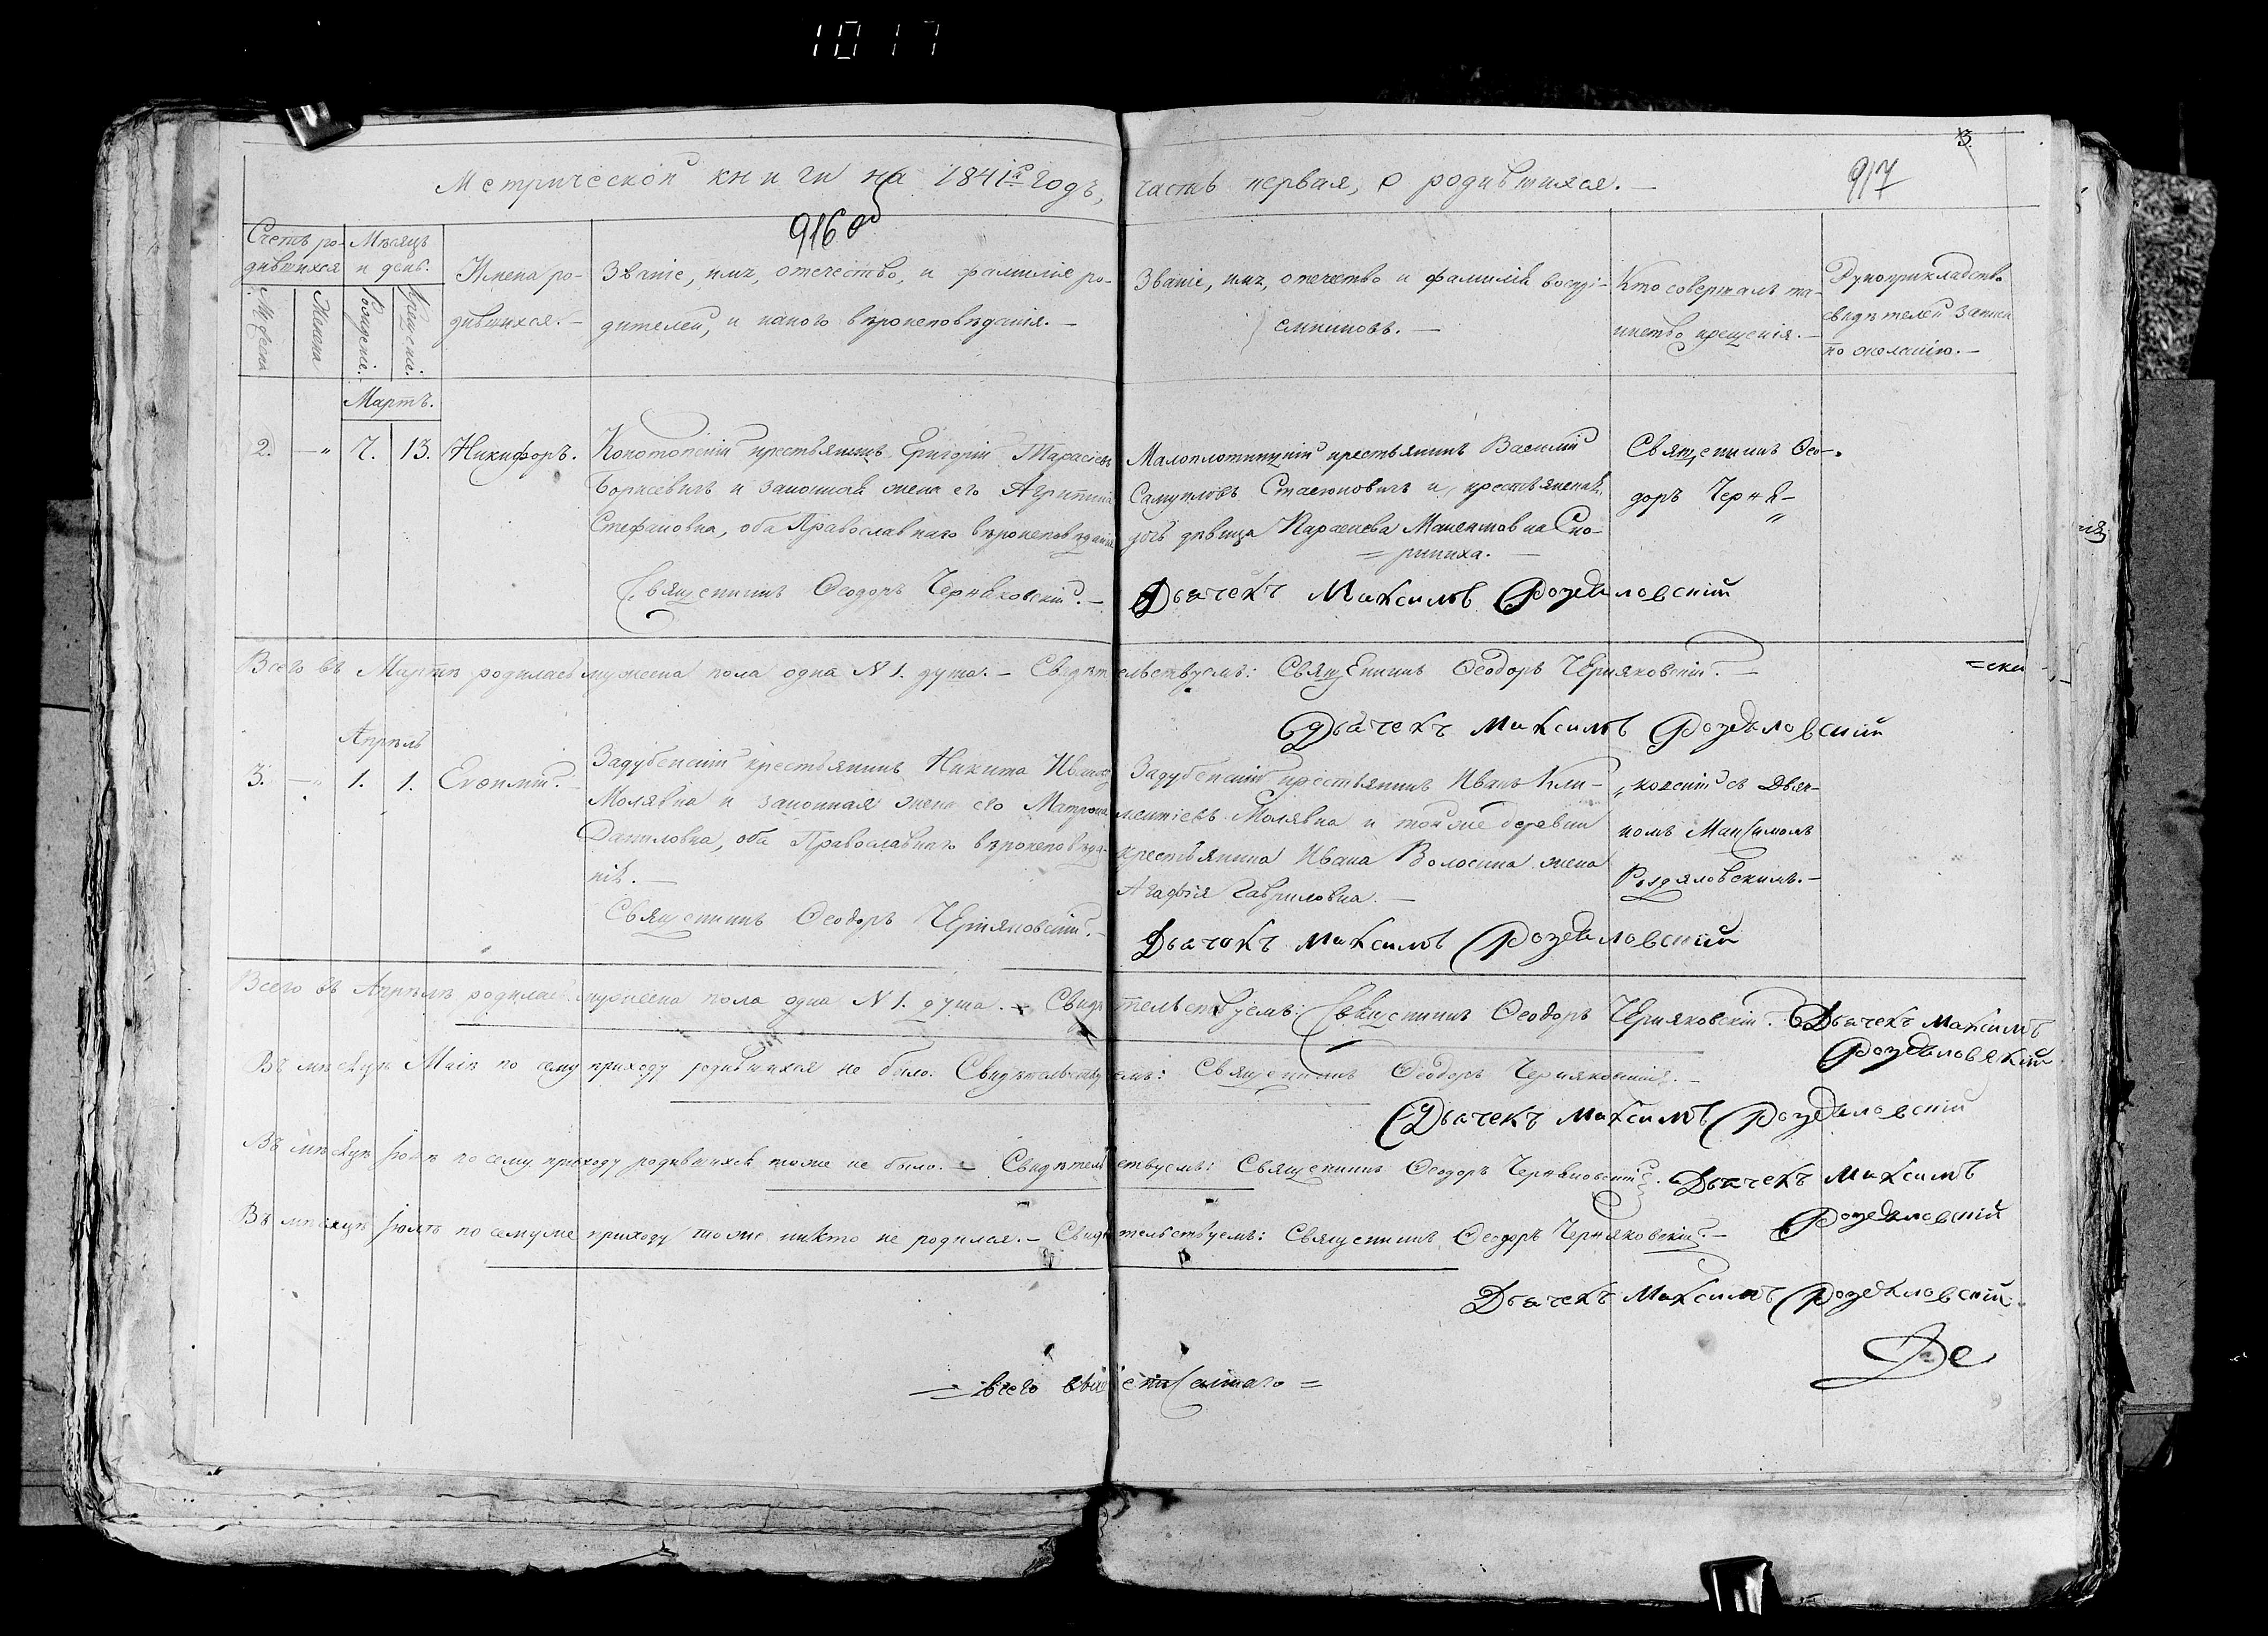 1017
3.
Метрической книги на 1841й Годъ, часть первая, о родившихся. —
917
916 об
Счетъ ро-
дившихся
Мѣсяцъ
и день.
Мужеска
Женска
Рожденіе.
Крещеніе.
Имена ро-
дившихся. —
Званіе, имя, отечество, и фамилія ро-
дителей, и какого вѣроисповѣданія. —
Званіе, имя, отечество и фамилія воспрі-
емниковъ. —
Кто совершалъ та-
инство крещенія. —
Рукоприкладство
свидѣтелей записи
по желанію. —
Мартъ.
2. — „ 7. 13. Никифоръ.
Конотопскій крестьянинъ Григорій Тарасіевъ
Борисевичъ и законная жена его Агрипина
Стефановна, оба Православнаго вѣроисповѣданія
Священникъ Ѳеодоръ Черняковскій. —
Малоплотницкій крестьянинъ Василій
Самуиловъ Стасюковичъ и крестьянская
дочь дѣвица Параскева Максимовна Ско-
= риниха. —
Дьячекъ Максимъ Роздяловскій
Священникъ Ѳео-
доръ Черня-
Всего въ Мартѣ родилась мужеска пола одна N 1. душа. — Свидѣтельствуемъ: Священникъ Ѳеодоръ Черняковскій. —
Дьячекъ Максимъ Роздяловский
Апрѣль
3. — „ 1. 1. Евѳимій. —
Задубенскій крестьянинъ Никита Ивановъ
Молявка и законная жена его Матрона
Даниловна, оба Православнаго вѣроисповѣда-
нія. —
Священникъ Ѳеодоръ Черняковскій. —
Задубенскій крестьянинъ Иванъ Кли-
ментіевъ Молявка и той же деревни
крестьянина Ивана Волосина жена
Агафія Гавриловна. —
Дьячокъ Максимъ Роздяловский
„ковскій съ Дьяч-
комъ Максимомъ
Роздяловскимъ. —
Всего въ Апрѣлѣ родилась мужеска пола одна N 1. душа. — Свидѣтельствуемъ: Священникъ Ѳеодоръ Черняковскій. Дьячекъ Максимъ
Роздяловский
Въ мѣсяцѣ Маіѣ по сему приходу родившихся не было. Свидѣтельствуемъ: Священникъ Ѳеодоръ Черняковскій. —
Дьячекъ Максимъ Роздяловскій
Въ мѣсяцѣ Іюнѣ по сему приходу родившихся тоже не было. — Свидѣтельствуемъ: Священникъ Ѳеодоръ Черняковскій. Дьячекъ Максимъ
Роздяловский
Въ мѣсяцѣ Іюлѣ по семуже приходу тоже никто не родился. — Свидѣтельствуемъ: Священникъ Ѳеодоръ Черняковскій. —
Дьячекъ Максимъ Роздяловский.
= всего